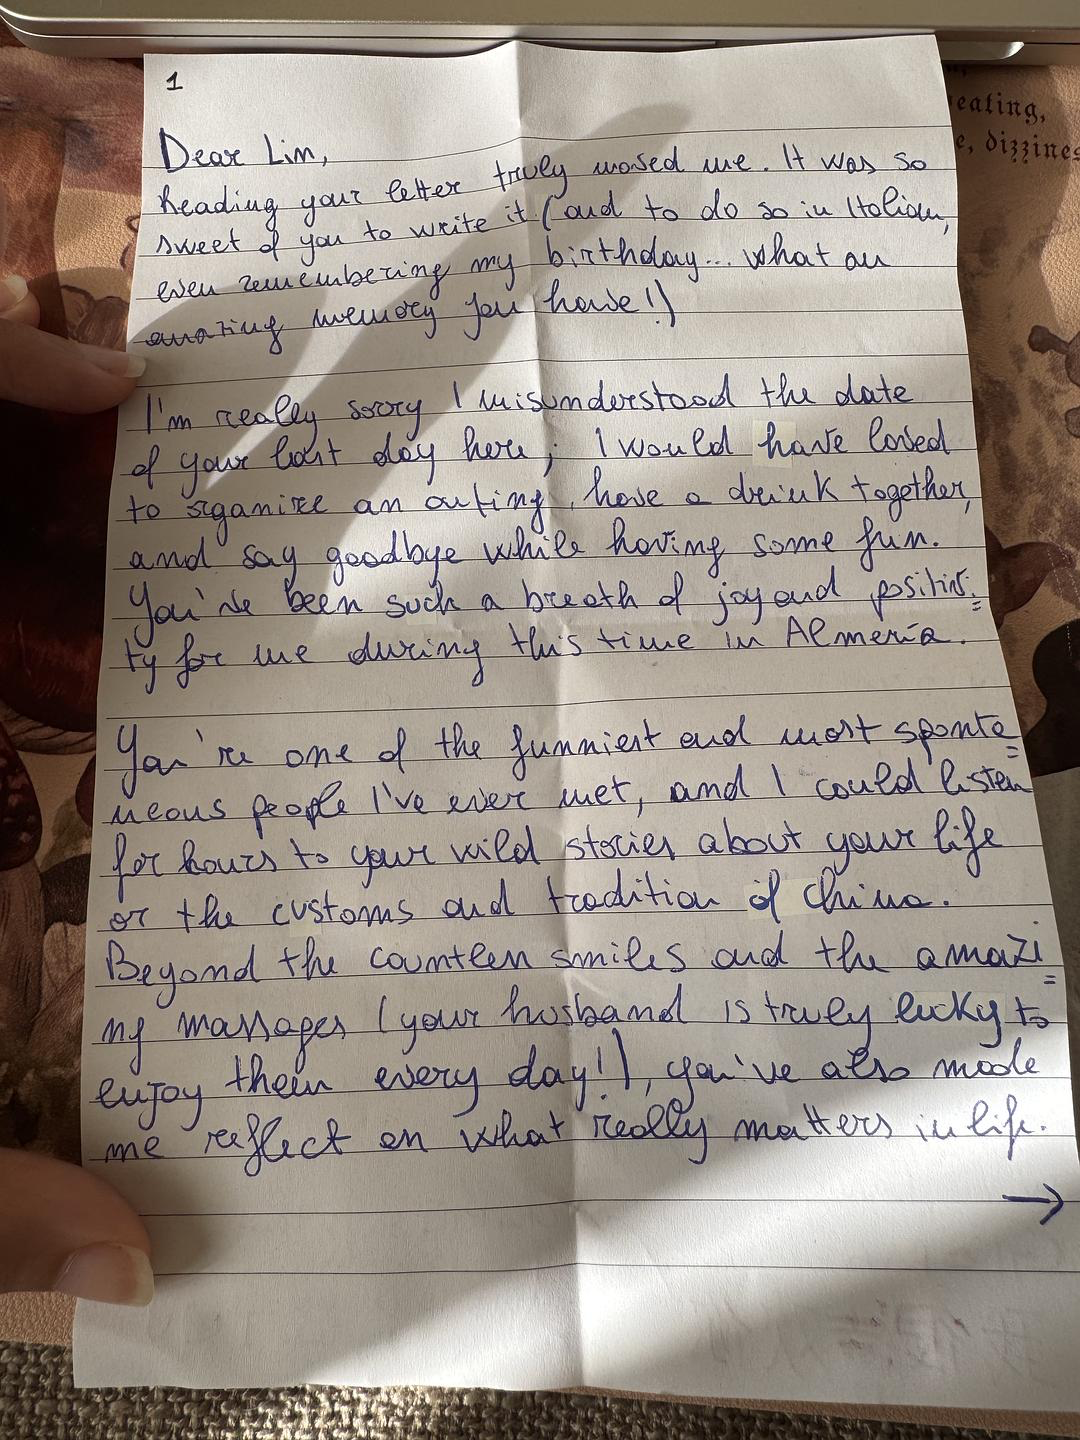 1
Dear Lim,
Reading your letter truly moved me. It was so
sweet of you to write it (and to do so in Italian,
even remembering my birthday... what an
amazing memory you have!)
I'm really sorry I misunderstood the date
of your last day here; I would have loved
to organize an outing, have a drink together,
and say goodbye while having some fun.
You've been such a breath of joy and positivi=
ty for me during this time in Almería.
You're one of the funniest and most sponta=
neous people I've ever met, and I could listen
for hours to your wild stories about your life
or the customs and tradition of China.
Beyond the countless smiles and the amazi=
ng massages (your husband is truly lucky to
enjoy them every day!), you've also made
me reflect on what really matters in life.
→
eating,
, dizzines